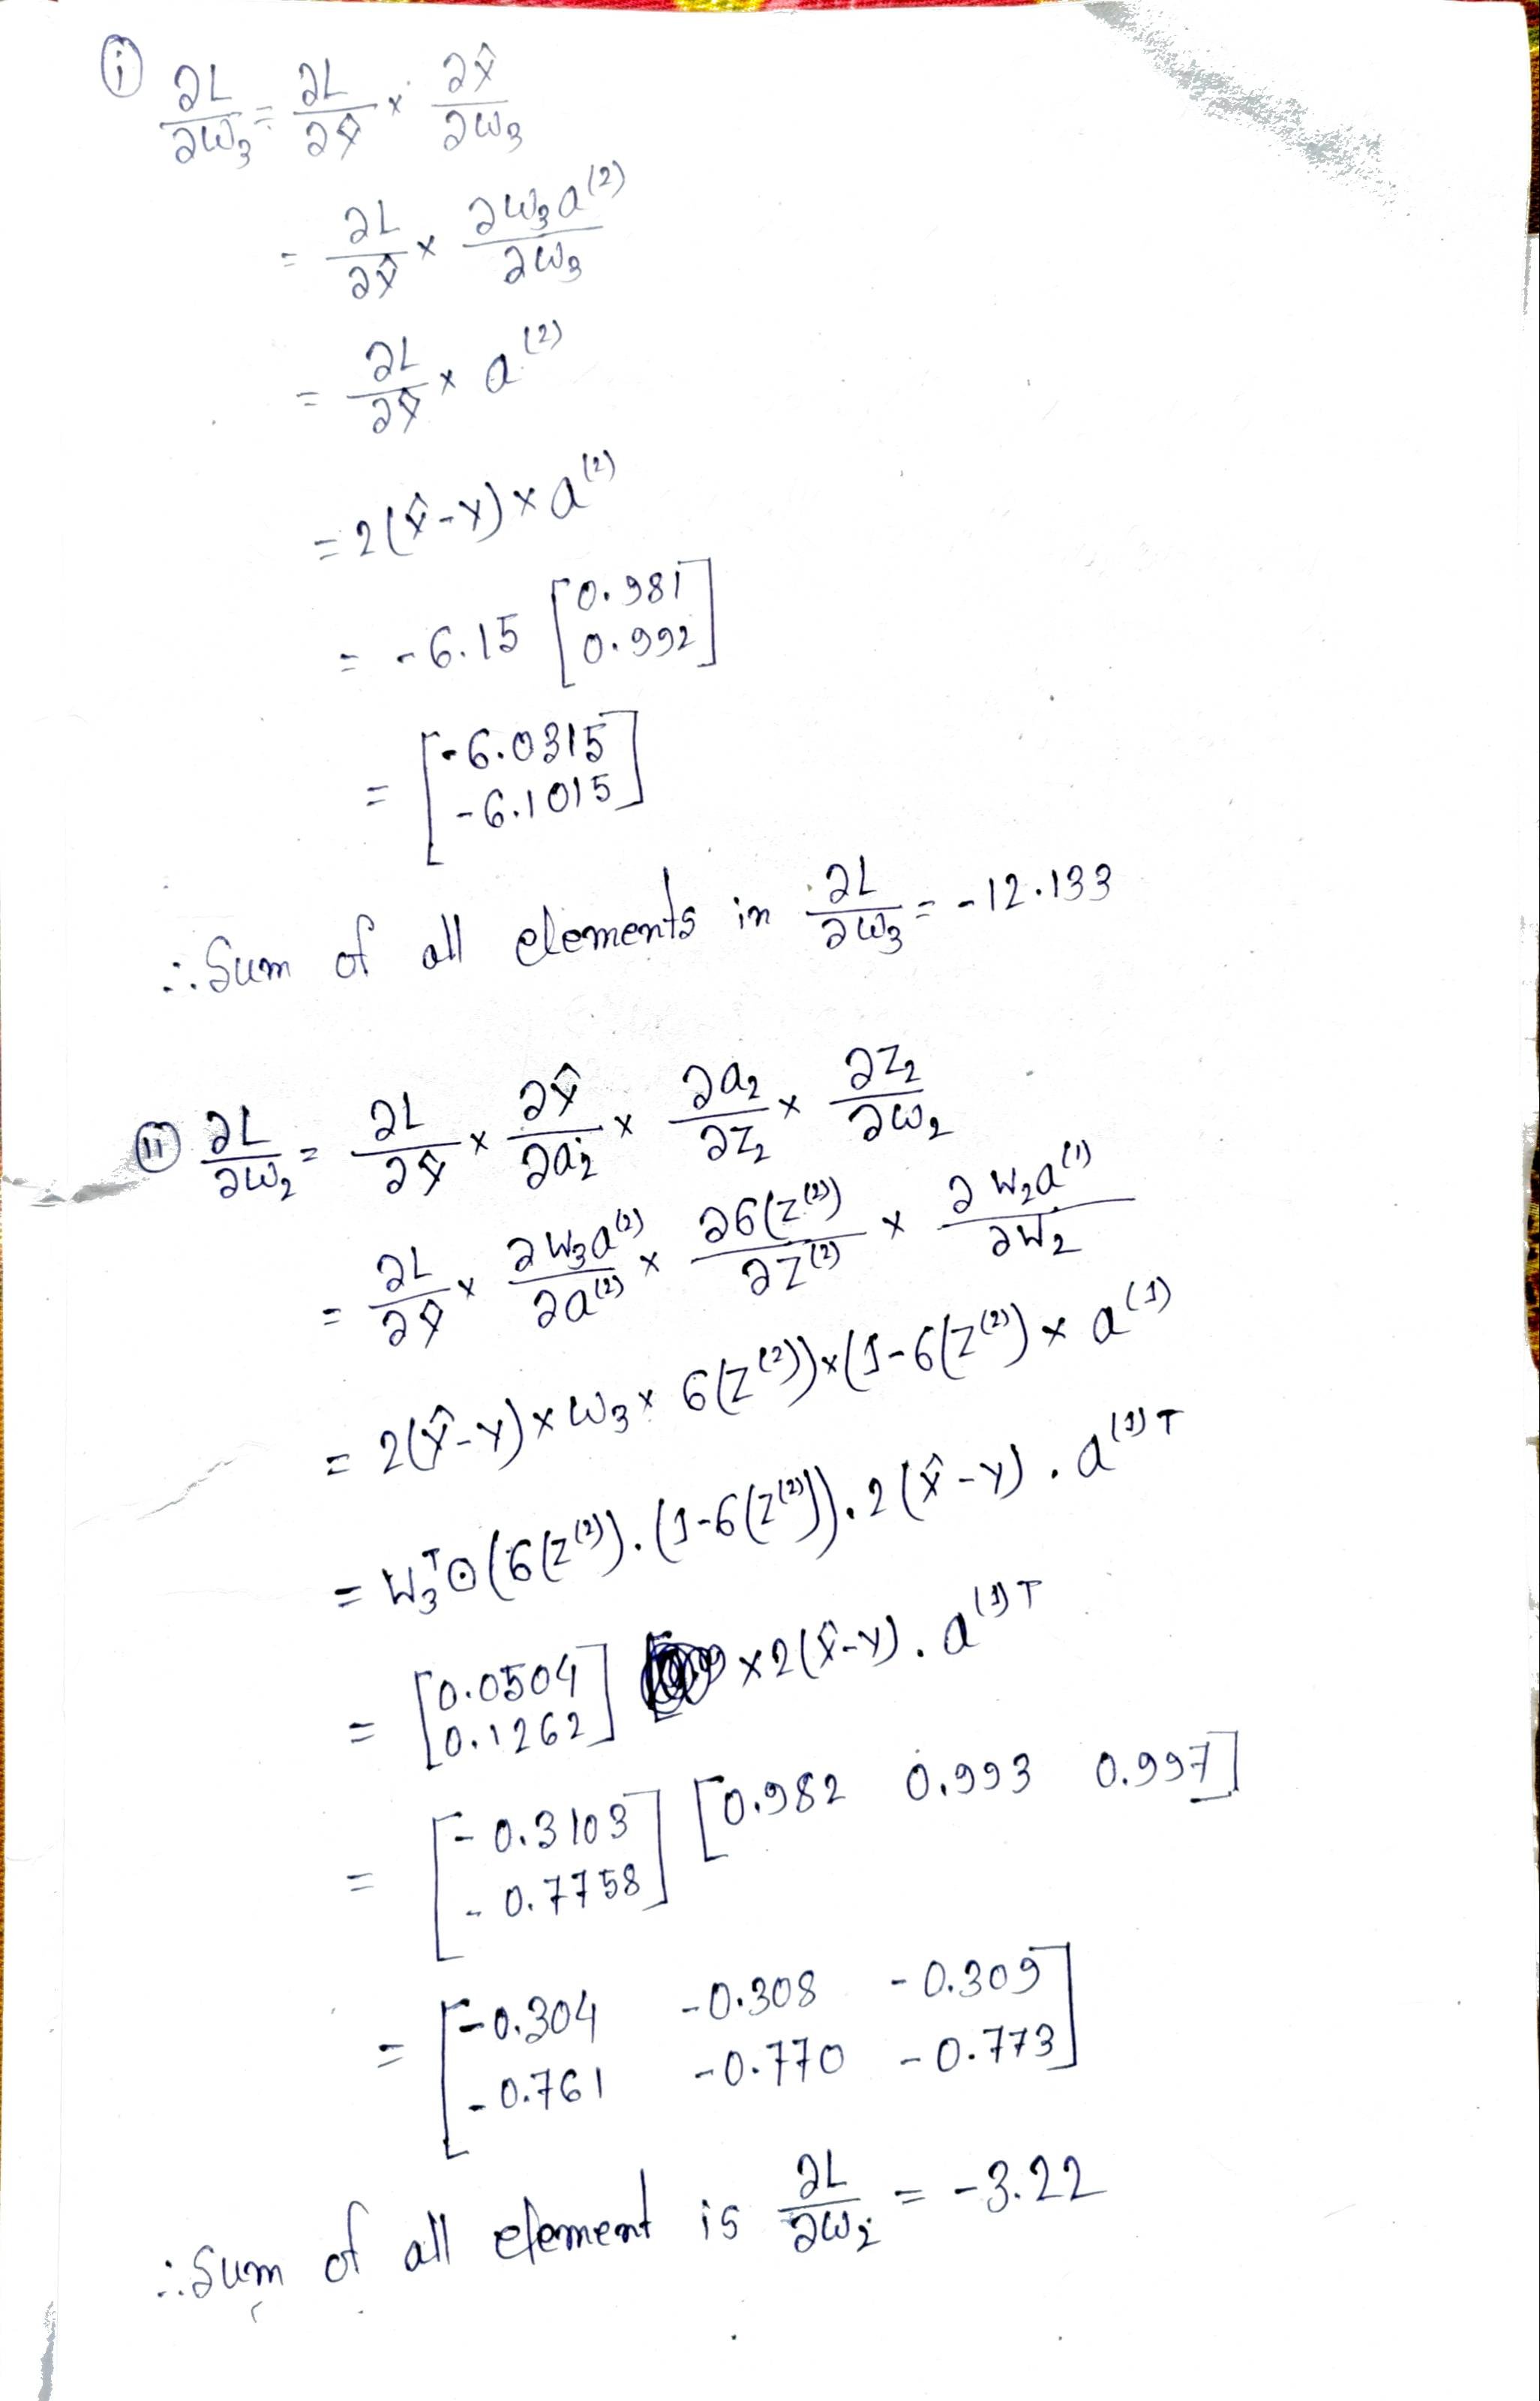 (i) ∂L/∂w₃ = ∂L/∂ŷ × ∂ŷ/∂w₃
= ∂L/∂ŷ × ∂w₃a⁽²⁾/∂w₃
= ∂L/∂ŷ × a⁽²⁾
= 2(ŷ-y) × a⁽²⁾
= -6.15 [0.981 0.992]
= [-6.0315 -6.1015]
∴ Sum of all elements in ∂L/∂w₃ = -12.133
(ii) ∂L/∂w₂ = ∂L/∂ŷ × ∂ŷ/∂a₂ × ∂a₂/∂z₂ × ∂z₂/∂w₂
= ∂L/∂ŷ × ∂w₃a⁽²⁾/∂a⁽²⁾ × ∂6(z⁽²⁾)/∂z⁽²⁾ × ∂w₂a⁽¹⁾/∂w₂
= 2(ŷ-y) × w₃ × 6(z⁽²⁾) × (1-6(z⁽²⁾) × a⁽¹⁾
= w₃ᵀ ⊙ (6(z⁽²⁾).(1-6(z⁽²⁾)).2(ŷ-y).a⁽¹⁾ᵀ
= [0.0504 0.1262] × 2(ŷ-y).a⁽¹⁾ᵀ
= [-0.3103 -0.7758] [0.982 0.993 0.997]
= [-0.304 -0.308 -0.309
-0.761 -0.770 -0.773]
∴ Sum of all element is ∂L/∂w₂ = -3.22